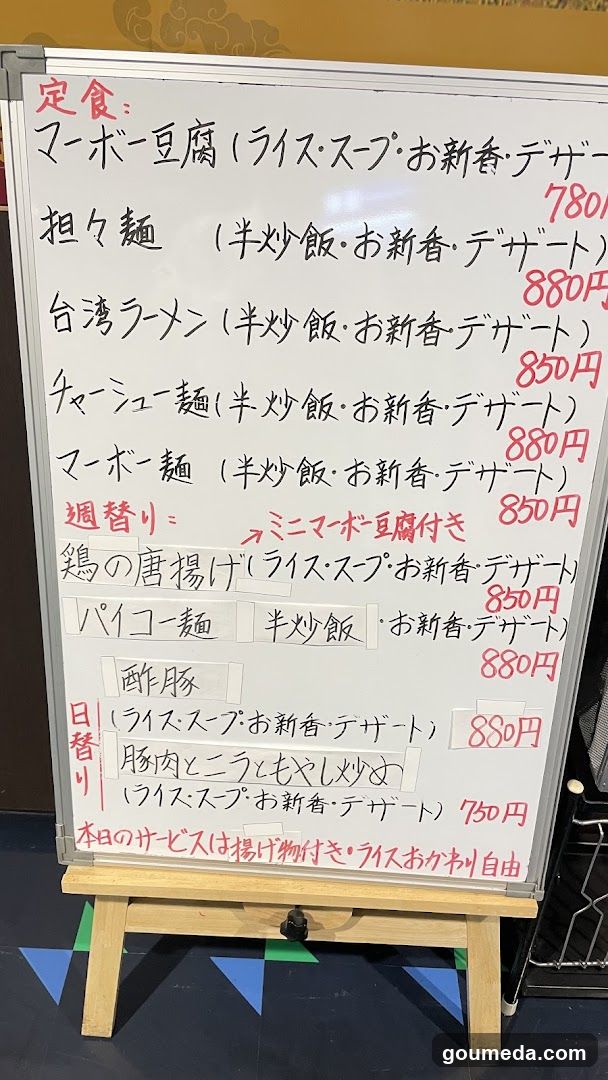 定食:
マーボー豆腐(ライス・スープ・お新香・デザー
780
担々麺 (半炒飯・お新香・デザート)
880円
台湾ラーメン(半炒飯・お新香・デザート)
850円
チャーシュー麺(半炒飯・お新香・デザート)
880円
マーボー麺 (半炒飯・お新香・デザート)
850円
週替り: →ミニマーボー豆腐付き
鶏の唐揚げ(ライス・スープ・お新香・デザート)
850円
パイコー麺 半炒飯・お新香・デザート)
880円
酢豚
日替り
(ライス・スープ・お新香・デザート) 880円
豚肉とニラともやし炒め
(ライス・スープ・お新香・デザート) 750円
本日のサービスは揚げ物付き・ライスおかわり自由
goumeda.com